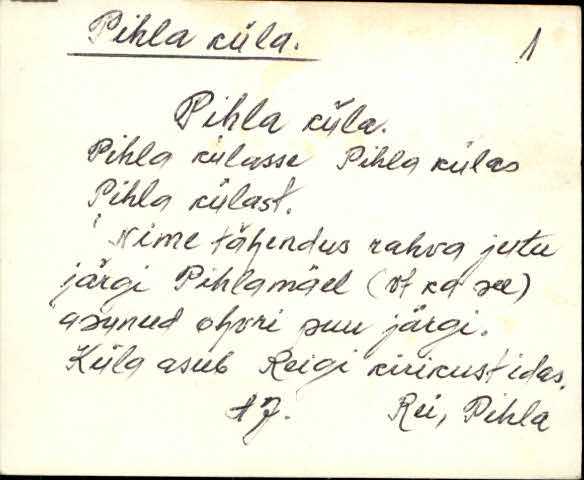 Pihla küla.
1
Pihla küla.
Pihla külasse Pihla külas
Pihla külast.
Nime tähendus rahva jutu
järgi Pihlamäel (vt ka see)
asunud ohvri puu järgi.
Küla asub Reigi kirikust idas.
Rei, Pihla